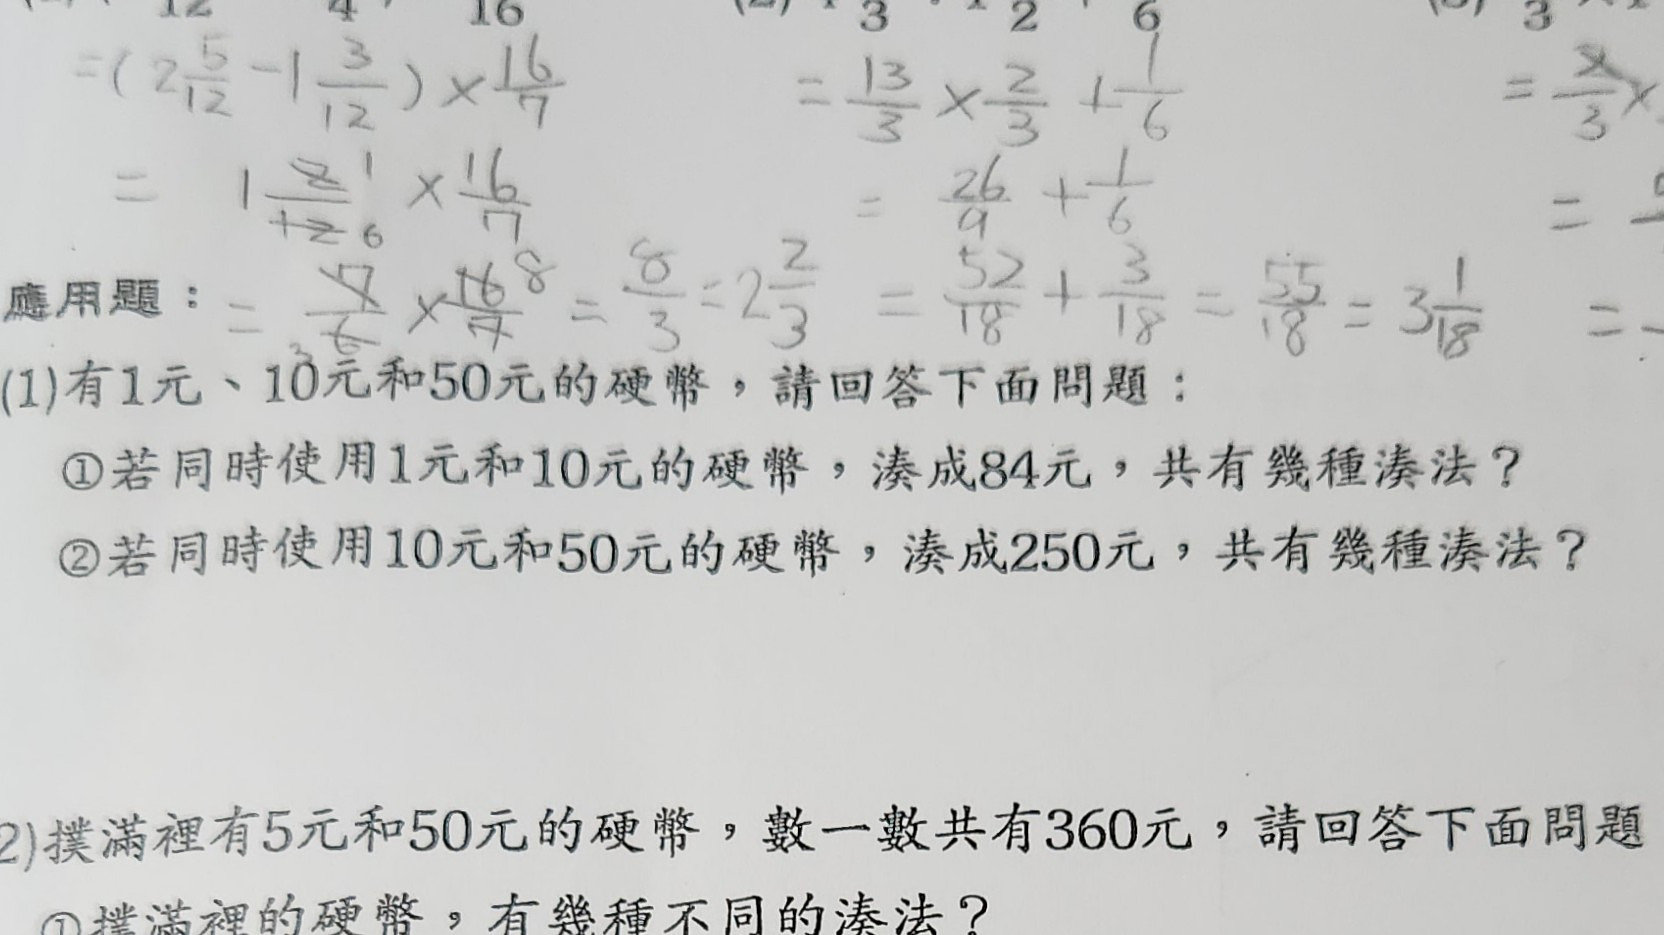 =(2 5/12 - 1 3/12) × 16/7
= 13/3 × 2/3 + 1/6
= 1 2/12 1/6 × 16/7
= 26/9 + 1/6
應用題：
= 7/6 × 16/7 = 8/3 = 2 2/3
= 52/18 + 3/18 = 55/18 = 3 1/18
(1)有1元、10元和50元的硬幣，請回答下面問題：
①若同時使用1元和10元的硬幣，湊成84元，共有幾種湊法？
②若同時使用10元和50元的硬幣，湊成250元，共有幾種湊法？
2)撲滿裡有5元和50元的硬幣，數一數共有360元，請回答下面問題
①撲滿裡的硬幣，有幾種不同的湊法？